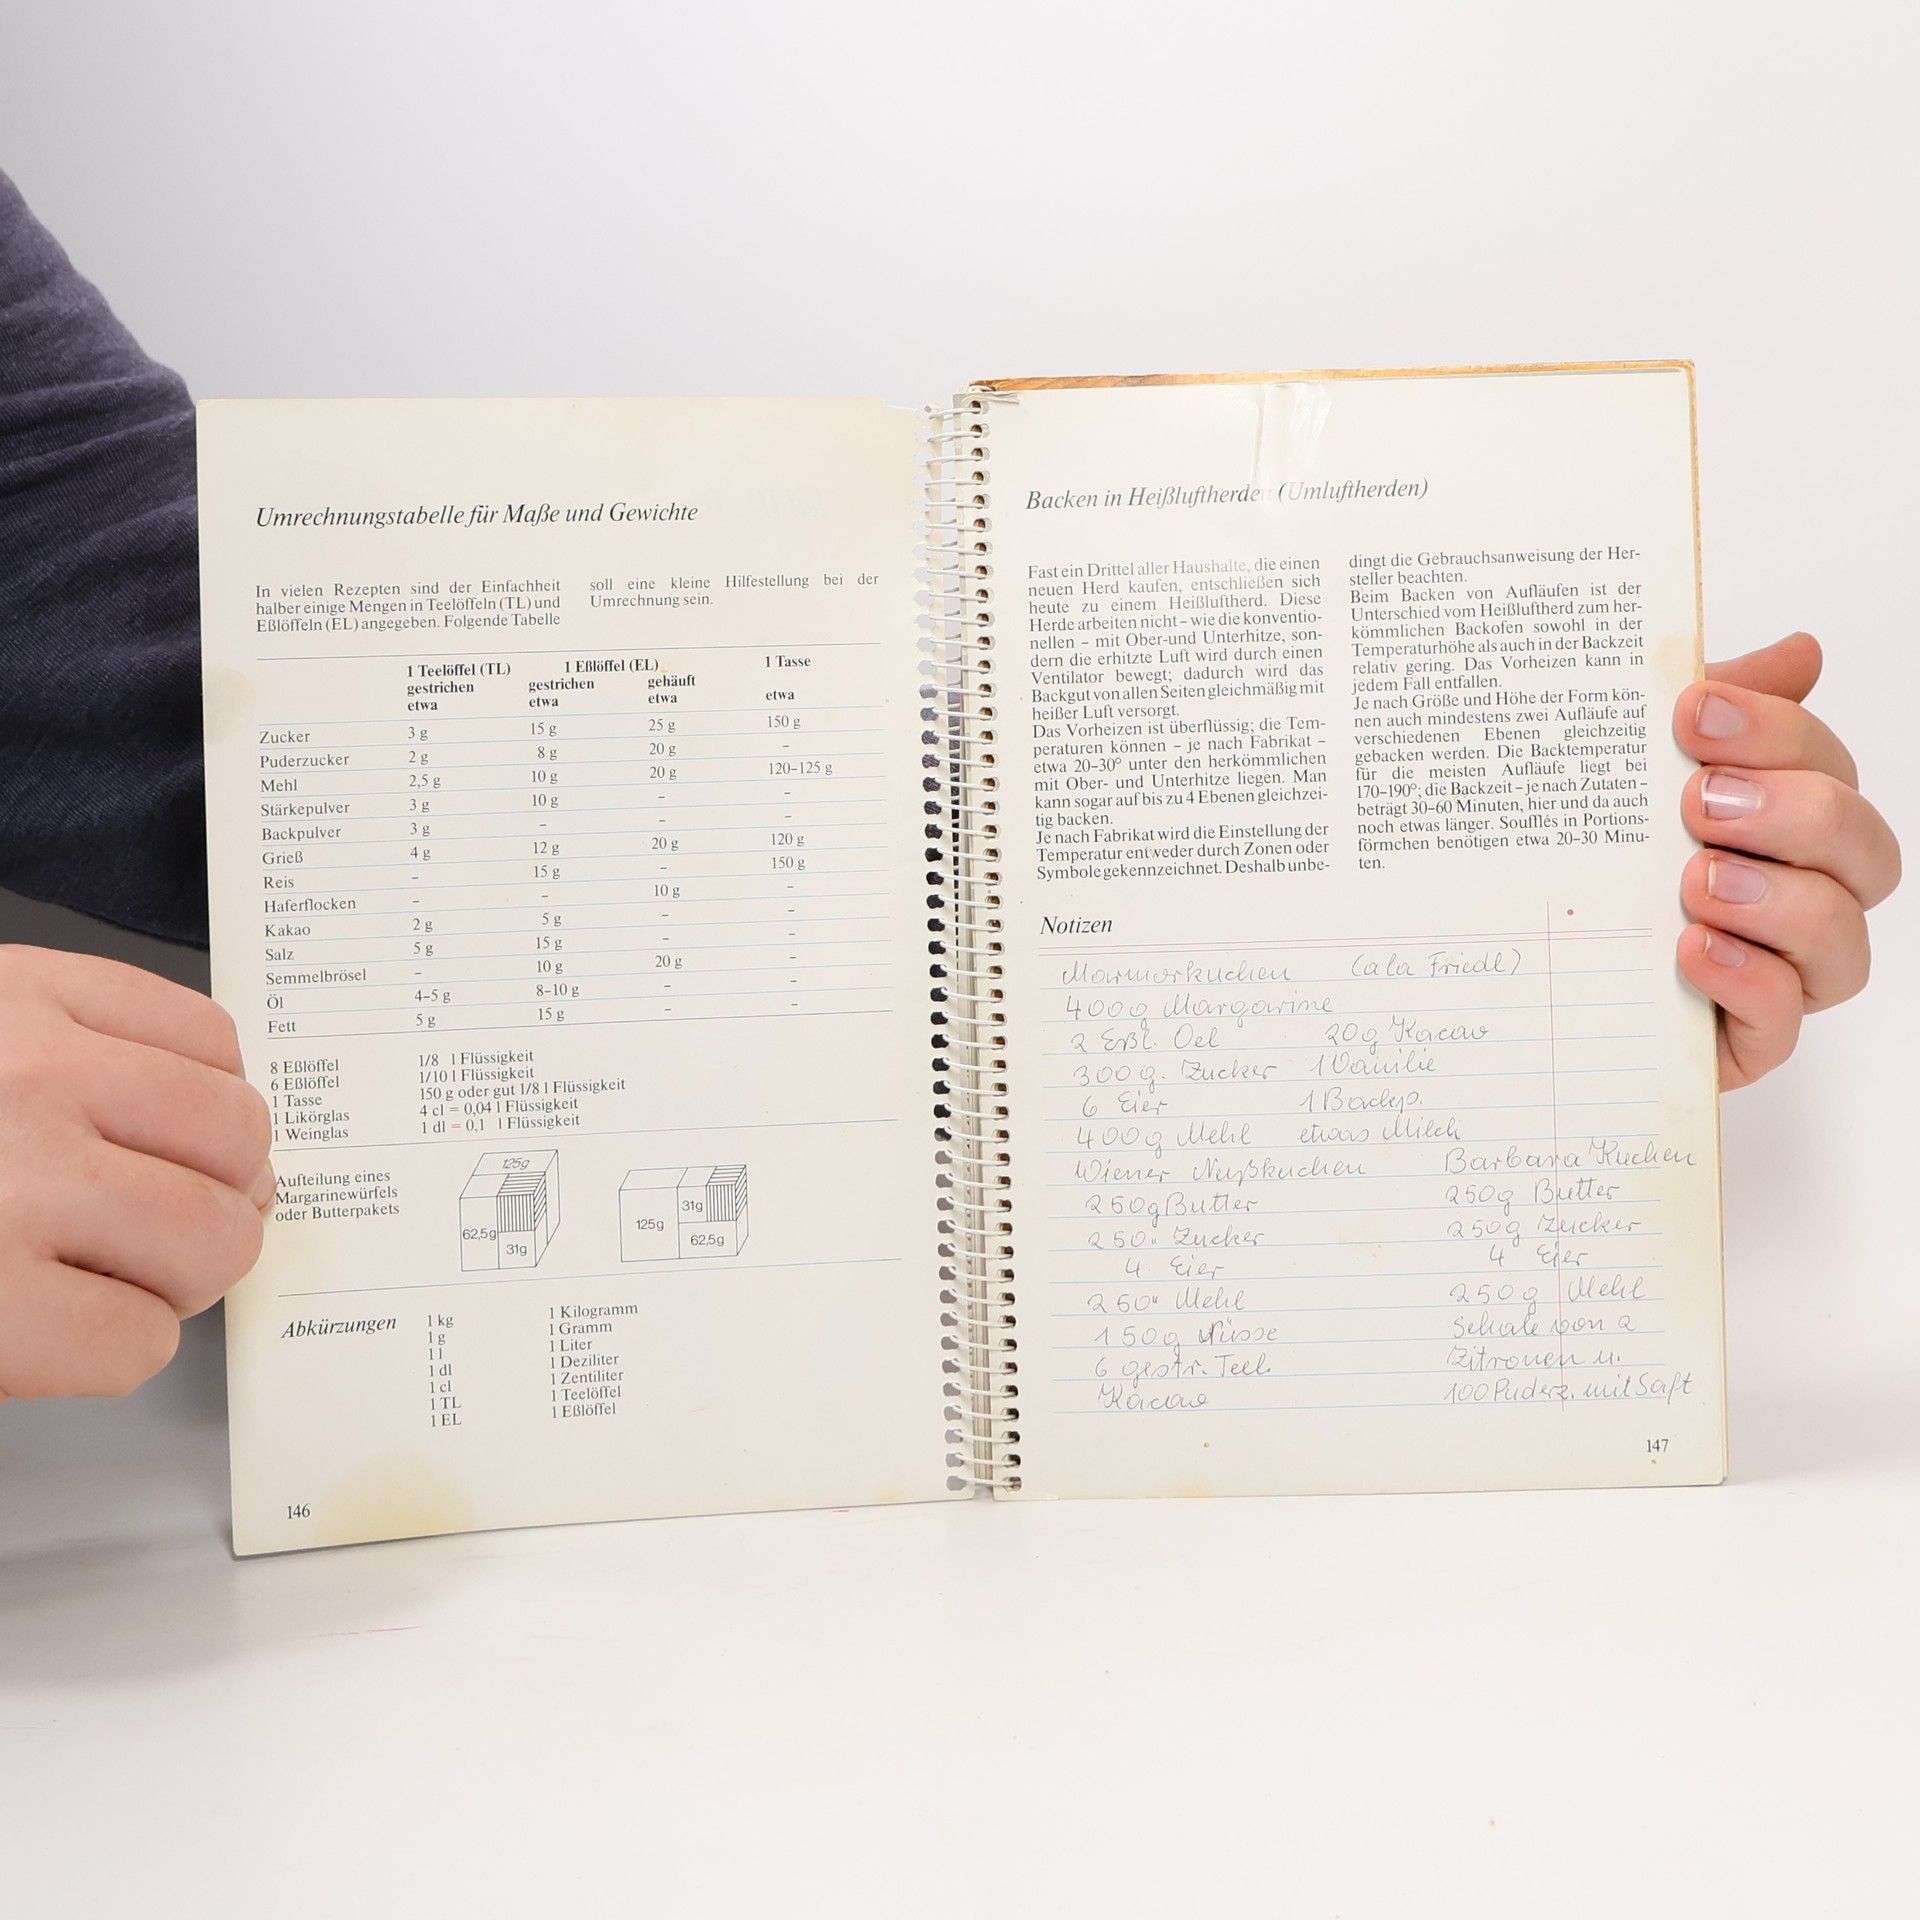 Umrechnungstabelle für Maße und Gewichte
In vielen Rezepten sind der Einfachheit
halber einige Mengen in Teelöffeln (TL) und
Eßlöffeln (EL) angegeben. Folgende Tabelle
soll eine kleine Hilfestellung bei der
Umrechnung sein.
1 Teelöffel (TL) 1 Eßlöffel (EL) 1 Tasse
gestrichen gestrichen gehäuft
etwa etwa etwa etwa
Zucker 3 g 15 g 25 g 150 g
Puderzucker 2 g 8 g 20 g –
Mehl 2,5 g 10 g 20 g 120–125 g
Stärkepulver 3 g 10 g – –
Backpulver 3 g – – –
Grieß 4 g 12 g 20 g 120 g
Reis – 15 g – 150 g
Haferflocken – – 10 g –
Kakao 2 g 5 g – –
Salz 5 g 15 g – –
Semmelbrösel – 10 g 20 g –
Öl 4–5 g 8–10 g – –
Fett 5 g 15 g – –
8 Eßlöffel 1/8 l Flüssigkeit
6 Eßlöffel 1/10 l Flüssigkeit
1 Tasse 150 g oder gut 1/8 l Flüssigkeit
1 Likörglas 4 cl = 0,04 l Flüssigkeit
1 Weinglas 1 dl = 0,1 l Flüssigkeit
Aufteilung eines
Margarinewürfels
oder Butterpakets
125g
62,5g
31g
125g
31g
62,5g
Abkürzungen
1 kg 1 Kilogramm
1 g 1 Gramm
1 l 1 Liter
1 dl 1 Deziliter
1 cl 1 Zentiliter
1 TL 1 Teelöffel
1 EL 1 Eßlöffel
146
Backen in Heißluftherden (Umluftherden)
Fast ein Drittel aller Haushalte, die einen
neuen Herd kaufen, entschließen sich
heute zu einem Heißluftherd. Diese
Herde arbeiten nicht – wie die konventio-
nellen – mit Ober-und Unterhitze, son-
dern die erhitzte Luft wird durch einen
Ventilator bewegt; dadurch wird das
Backgut von allen Seiten gleichmäßig mit
heißer Luft versorgt.
Das Vorheizen ist überflüssig; die Tem-
peraturen können – je nach Fabrikat –
etwa 20–30° unter den herkömmlichen
mit Ober- und Unterhitze liegen. Man
kann sogar auf bis zu 4 Ebenen gleichzei-
tig backen.
Je nach Fabrikat wird die Einstellung der
Temperatur entweder durch Zonen oder
Symbole gekennzeichnet. Deshalb unbe-
dingt die Gebrauchsanweisung der Her-
steller beachten.
Beim Backen von Aufläufen ist der
Unterschied vom Heißluftherd zum her-
kömmlichen Backofen sowohl in der
Temperaturhöhe als auch in der Backzeit
relativ gering. Das Vorheizen kann in
jedem Fall entfallen.
Je nach Größe und Höhe der Form kön-
nen auch mindestens zwei Aufläufe auf
verschiedenen Ebenen gleichzeitig
gebacken werden. Die Backtemperatur
für die meisten Aufläufe liegt bei
170–190°; die Backzeit – je nach Zutaten –
beträgt 30–60 Minuten, hier und da auch
noch etwas länger. Soufflés in Portions-
förmchen benötigen etwa 20–30 Minu-
ten.
Notizen
Marmorkuchen (ala Friedl)
400g Margarine
2 Eßl. Oel 20g Kacao
300g. Zucker 1 Vanilie
6 Eier 1 Backp.
400g Mehl etwas Milch
Wiener Nußkuchen
250g Butter
250" Zucker
4 Eier
250" Mehl
150g Nüsse
6 gestr. Teel.
Kacao
Barbara Kuchen
250g Butter
250g Zucker
4 Eier
250g Mehl
Schale von 2
Zitronen u.
100 Puderz. mit Saft
147